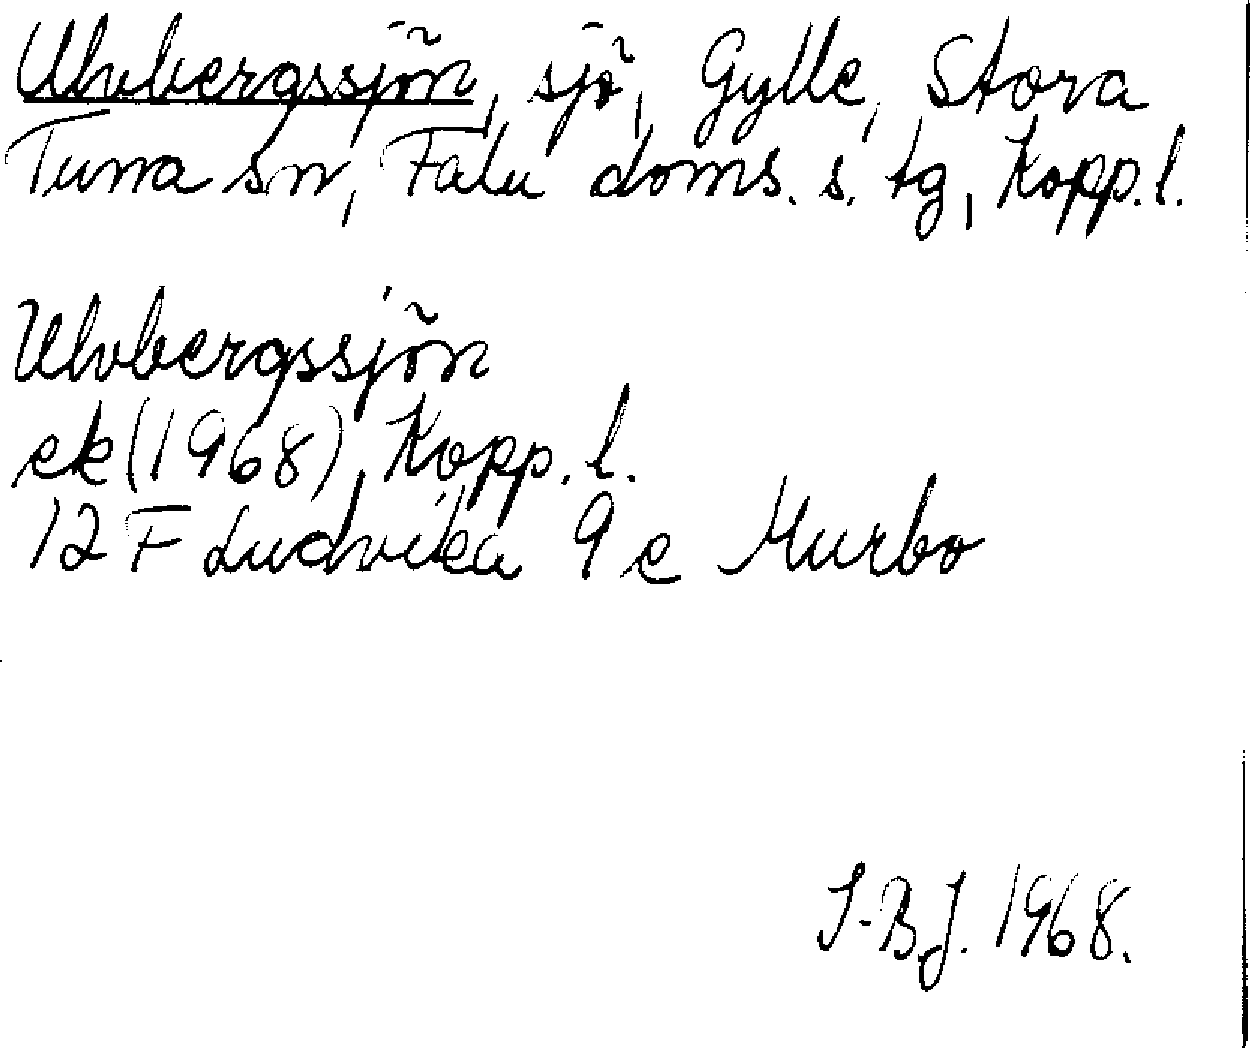 Ulvbergssjön, sjö, Gylle, Stora
Tuna sn, Falu doms. s. tg, Kopp. l.
Ulvbergssjön
ek (1968), Kopp. l.
12 F Ludvika 9 e Murbo
I-B.J. 1968.